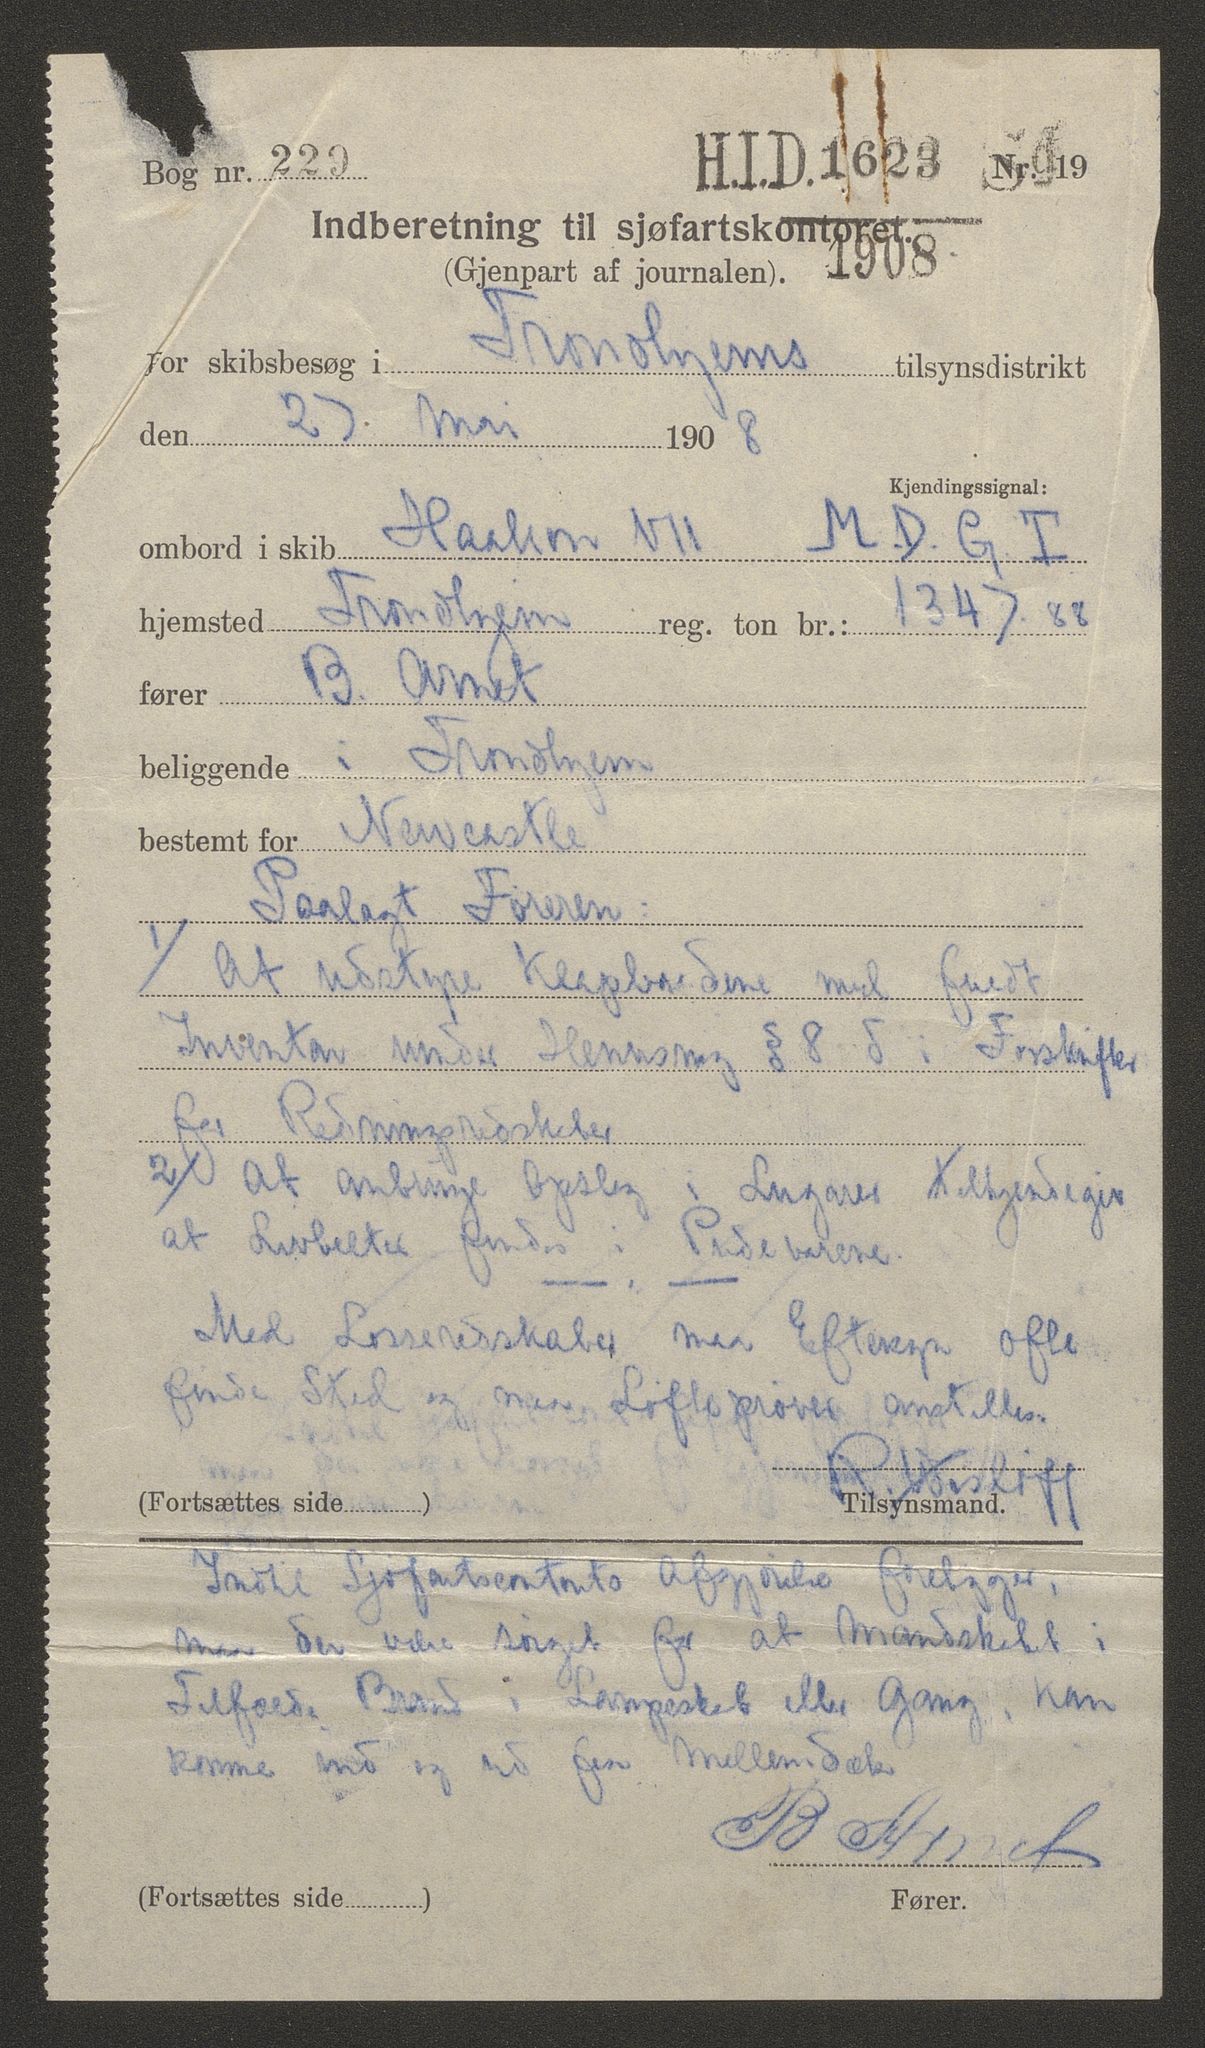 Bog nr. 229
H.I.D. 1623 Nr. 19
Indberetning til sjøfartskontoret.
1908
(Gjenpart af journalen).
for skibsbesøg i Trondhjems tilsynsdistrikt
den 27. Mai 1908
Kjendingssignal:
ombord i skib Haakon VII M.D.G.T
hjemsted Trondhjem reg. ton br.: 1347.88
fører B. Arnet
beliggende i Trondhjem
bestemt for Newcastle
Paalagt Føreren:
1/ At udstyre Klapbaadene med
Inventar under Henvisning § 8 d i Forskrifter
for Redningsredskaber
2/ At anbringe Opslag i Lugarer tilkjendegir
at Livbelter findes i Pudevarene.
Med Losseredskaber maa Eftersyn ofte
finde Sted og maa Løfteprøver anstilles.
(Fortsættes side ) Tilsynsmand.
Indtil Sjøfartscontorets Afgjørelse foreligger,
maa der være sørget for at Mandskabet i
Tilfælde Brand i Lampeskab eller Gang, kan
komme ind og ud fra Mellemdæk
B Arnet
(Fortsættes side ) Fører.